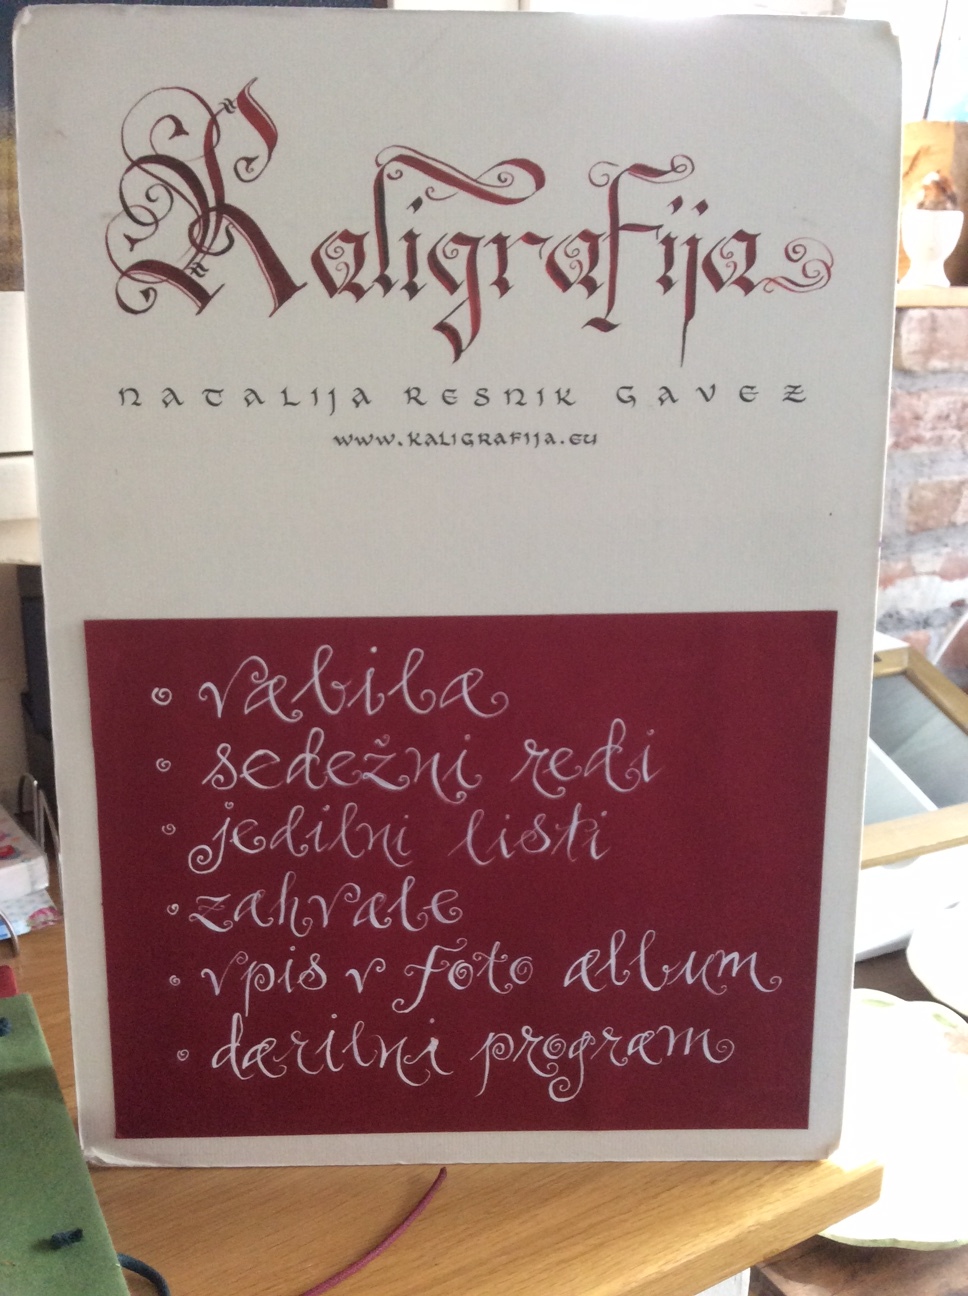 Kaligrafija
NATALIJA RESNIK GAVEZ
WWW.KALIGRAFIJA.EU
• vabila
• sedežni redi
• jedilni listi
• zahvale
• vpis v foto album
• darilni program